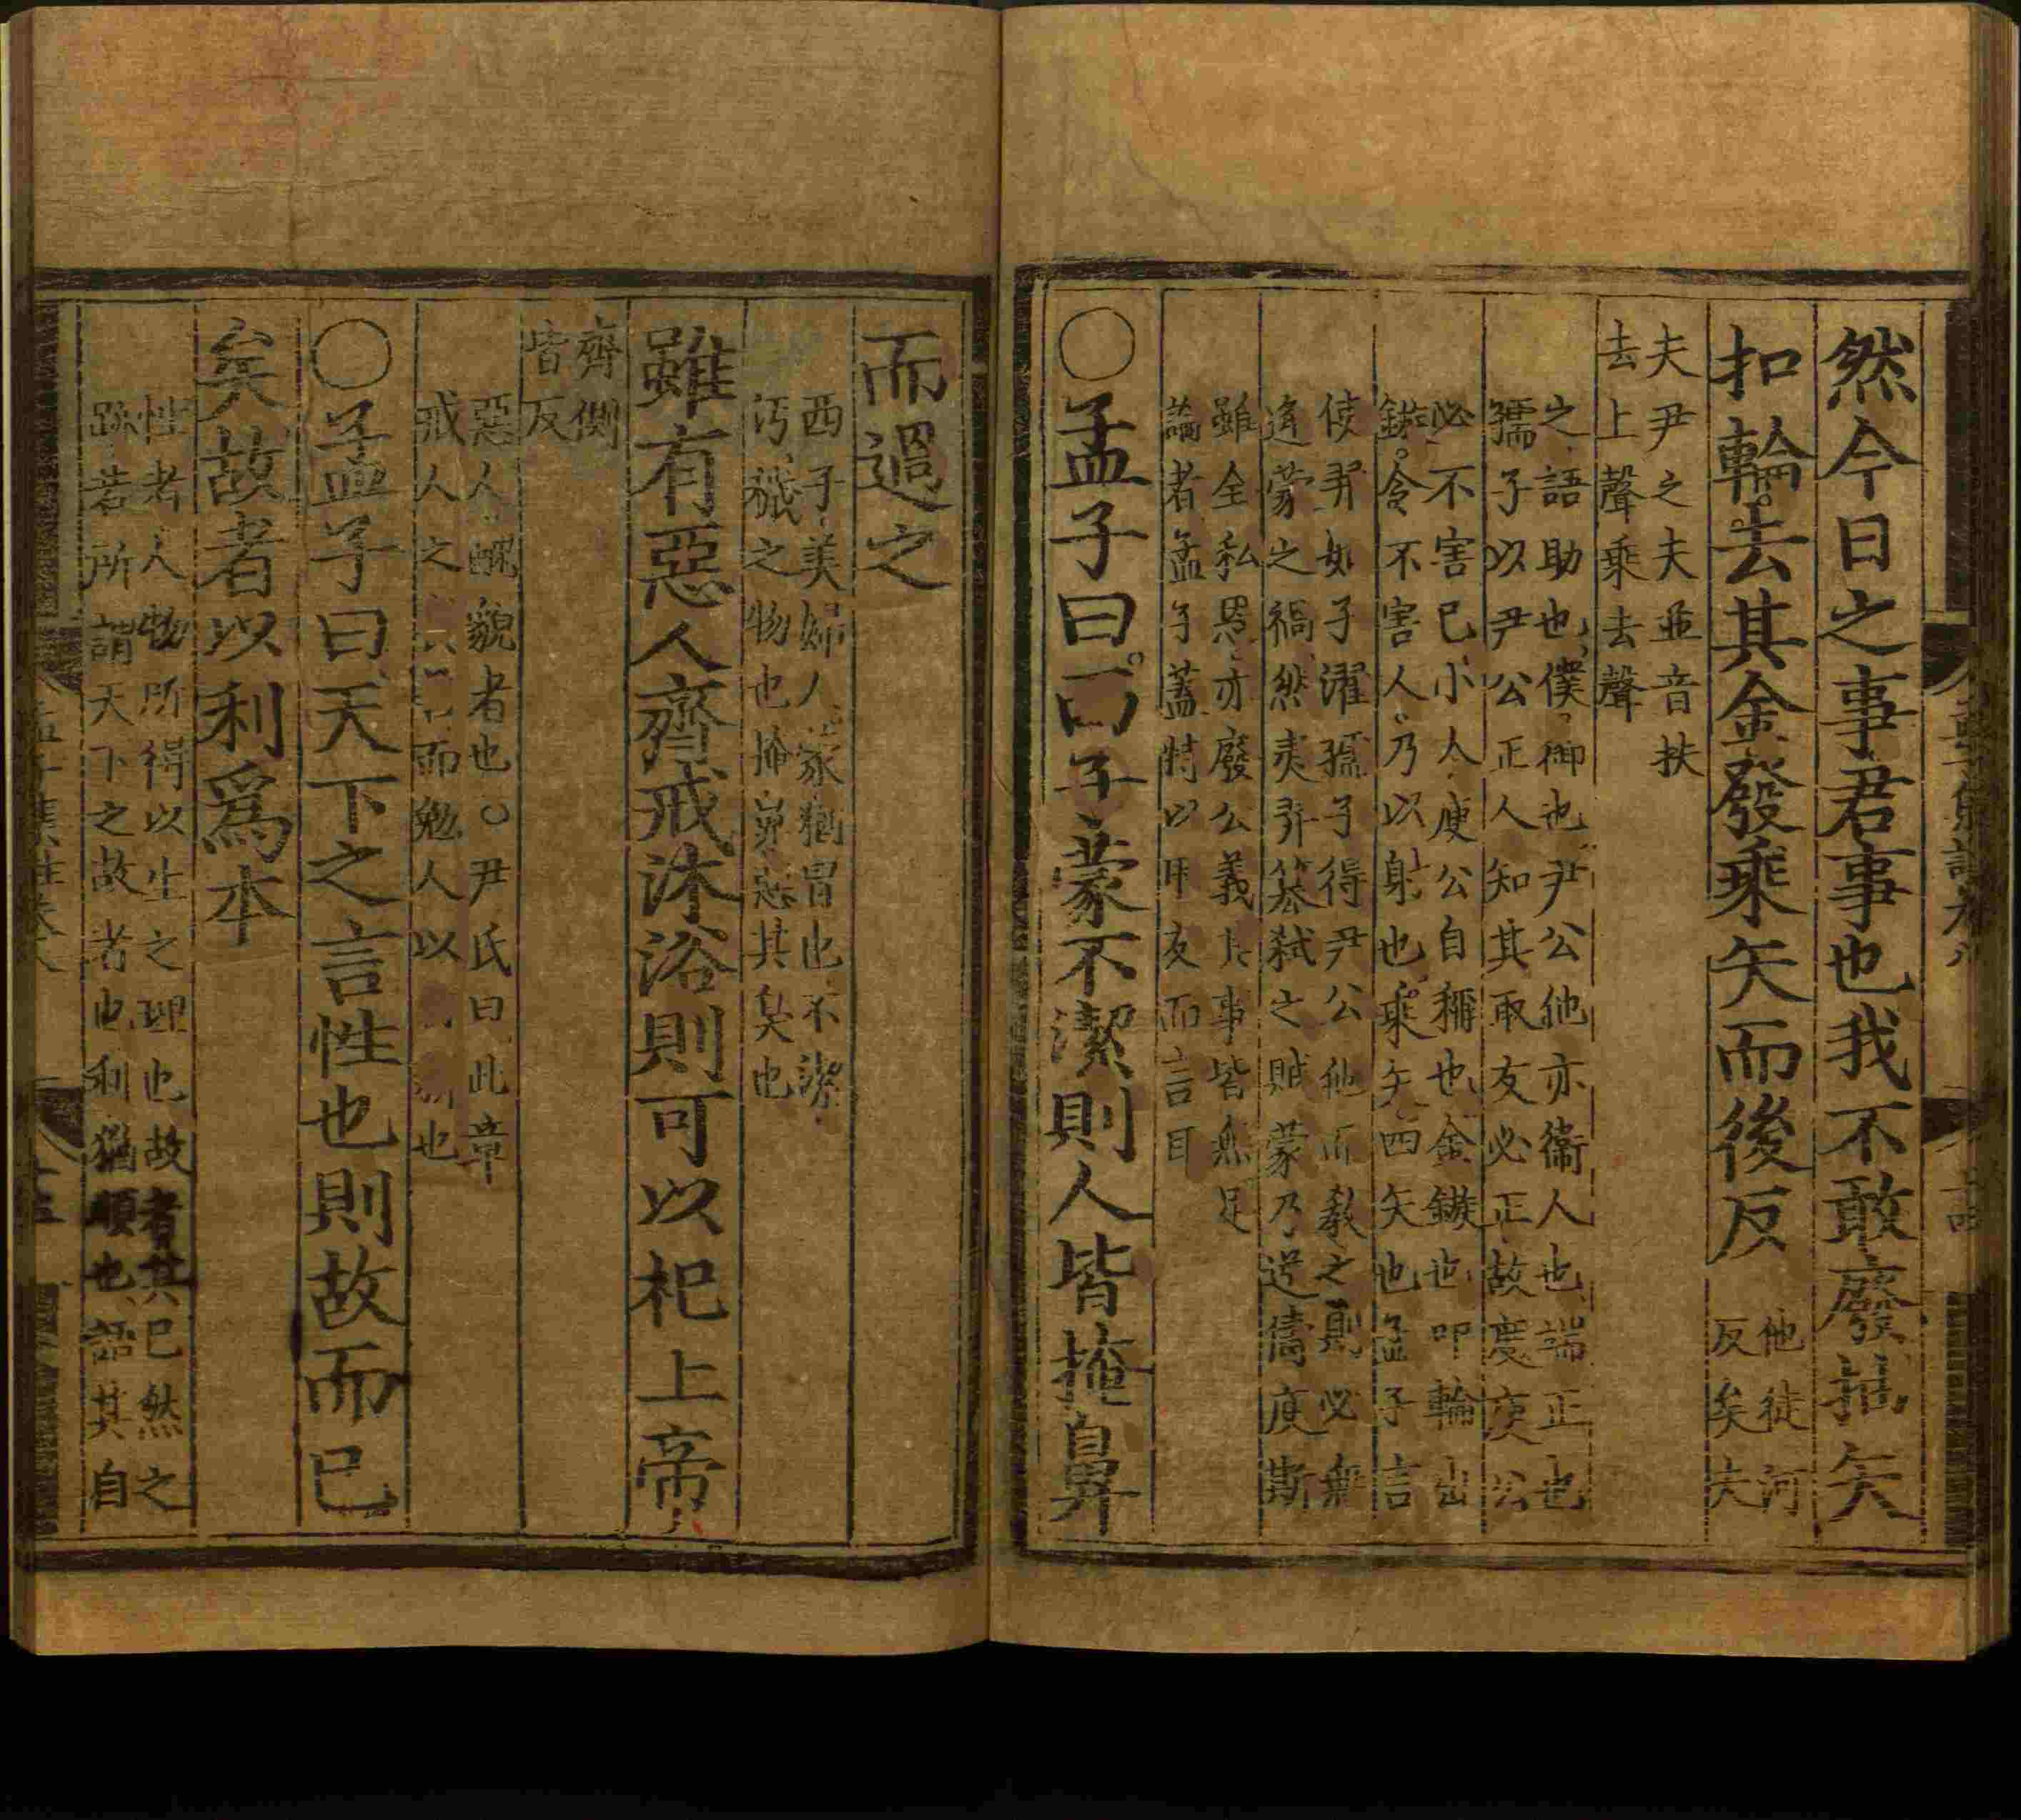 然今日之事君事也我不敢廢抽矢
扣輪去其金發乘矢而後反
他徒河
反矣夫
夫尹之夫並音扶
去上聲乘去聲
之語助也僕御也尹公他亦衞人也端正也
孺子以尹公正人知其取友必正故度庾公
必不害已小人庾公自稱也金鏃也叩輪出
鏃令不害人乃以射也乘矢四矢也孟子言
使羿如子濯孺子得尹公他而敎之則必無
逄蒙之禍然夷羿簒弑之賊蒙乃逆儔庾斯
雖全私恩亦廢公義其事皆無足
論者孟子蓋特以取友而言耳
○孟子曰西子蒙不潔則人皆掩鼻
而過之
西子美婦人蒙猶冒也不潔
汚穢之物也掩鼻惡其臭也
雖有惡人齊戒沐浴則可以祀上帝
齊側
皆反
惡人醜貌者也○尹氏曰此章
戒人之而勉人以也
○孟子曰天下之言性也則故而已
矣故者以利爲本
性者人物所得以生之理也故者其已然之
跡若所謂天下之故者也利猶順也語其自